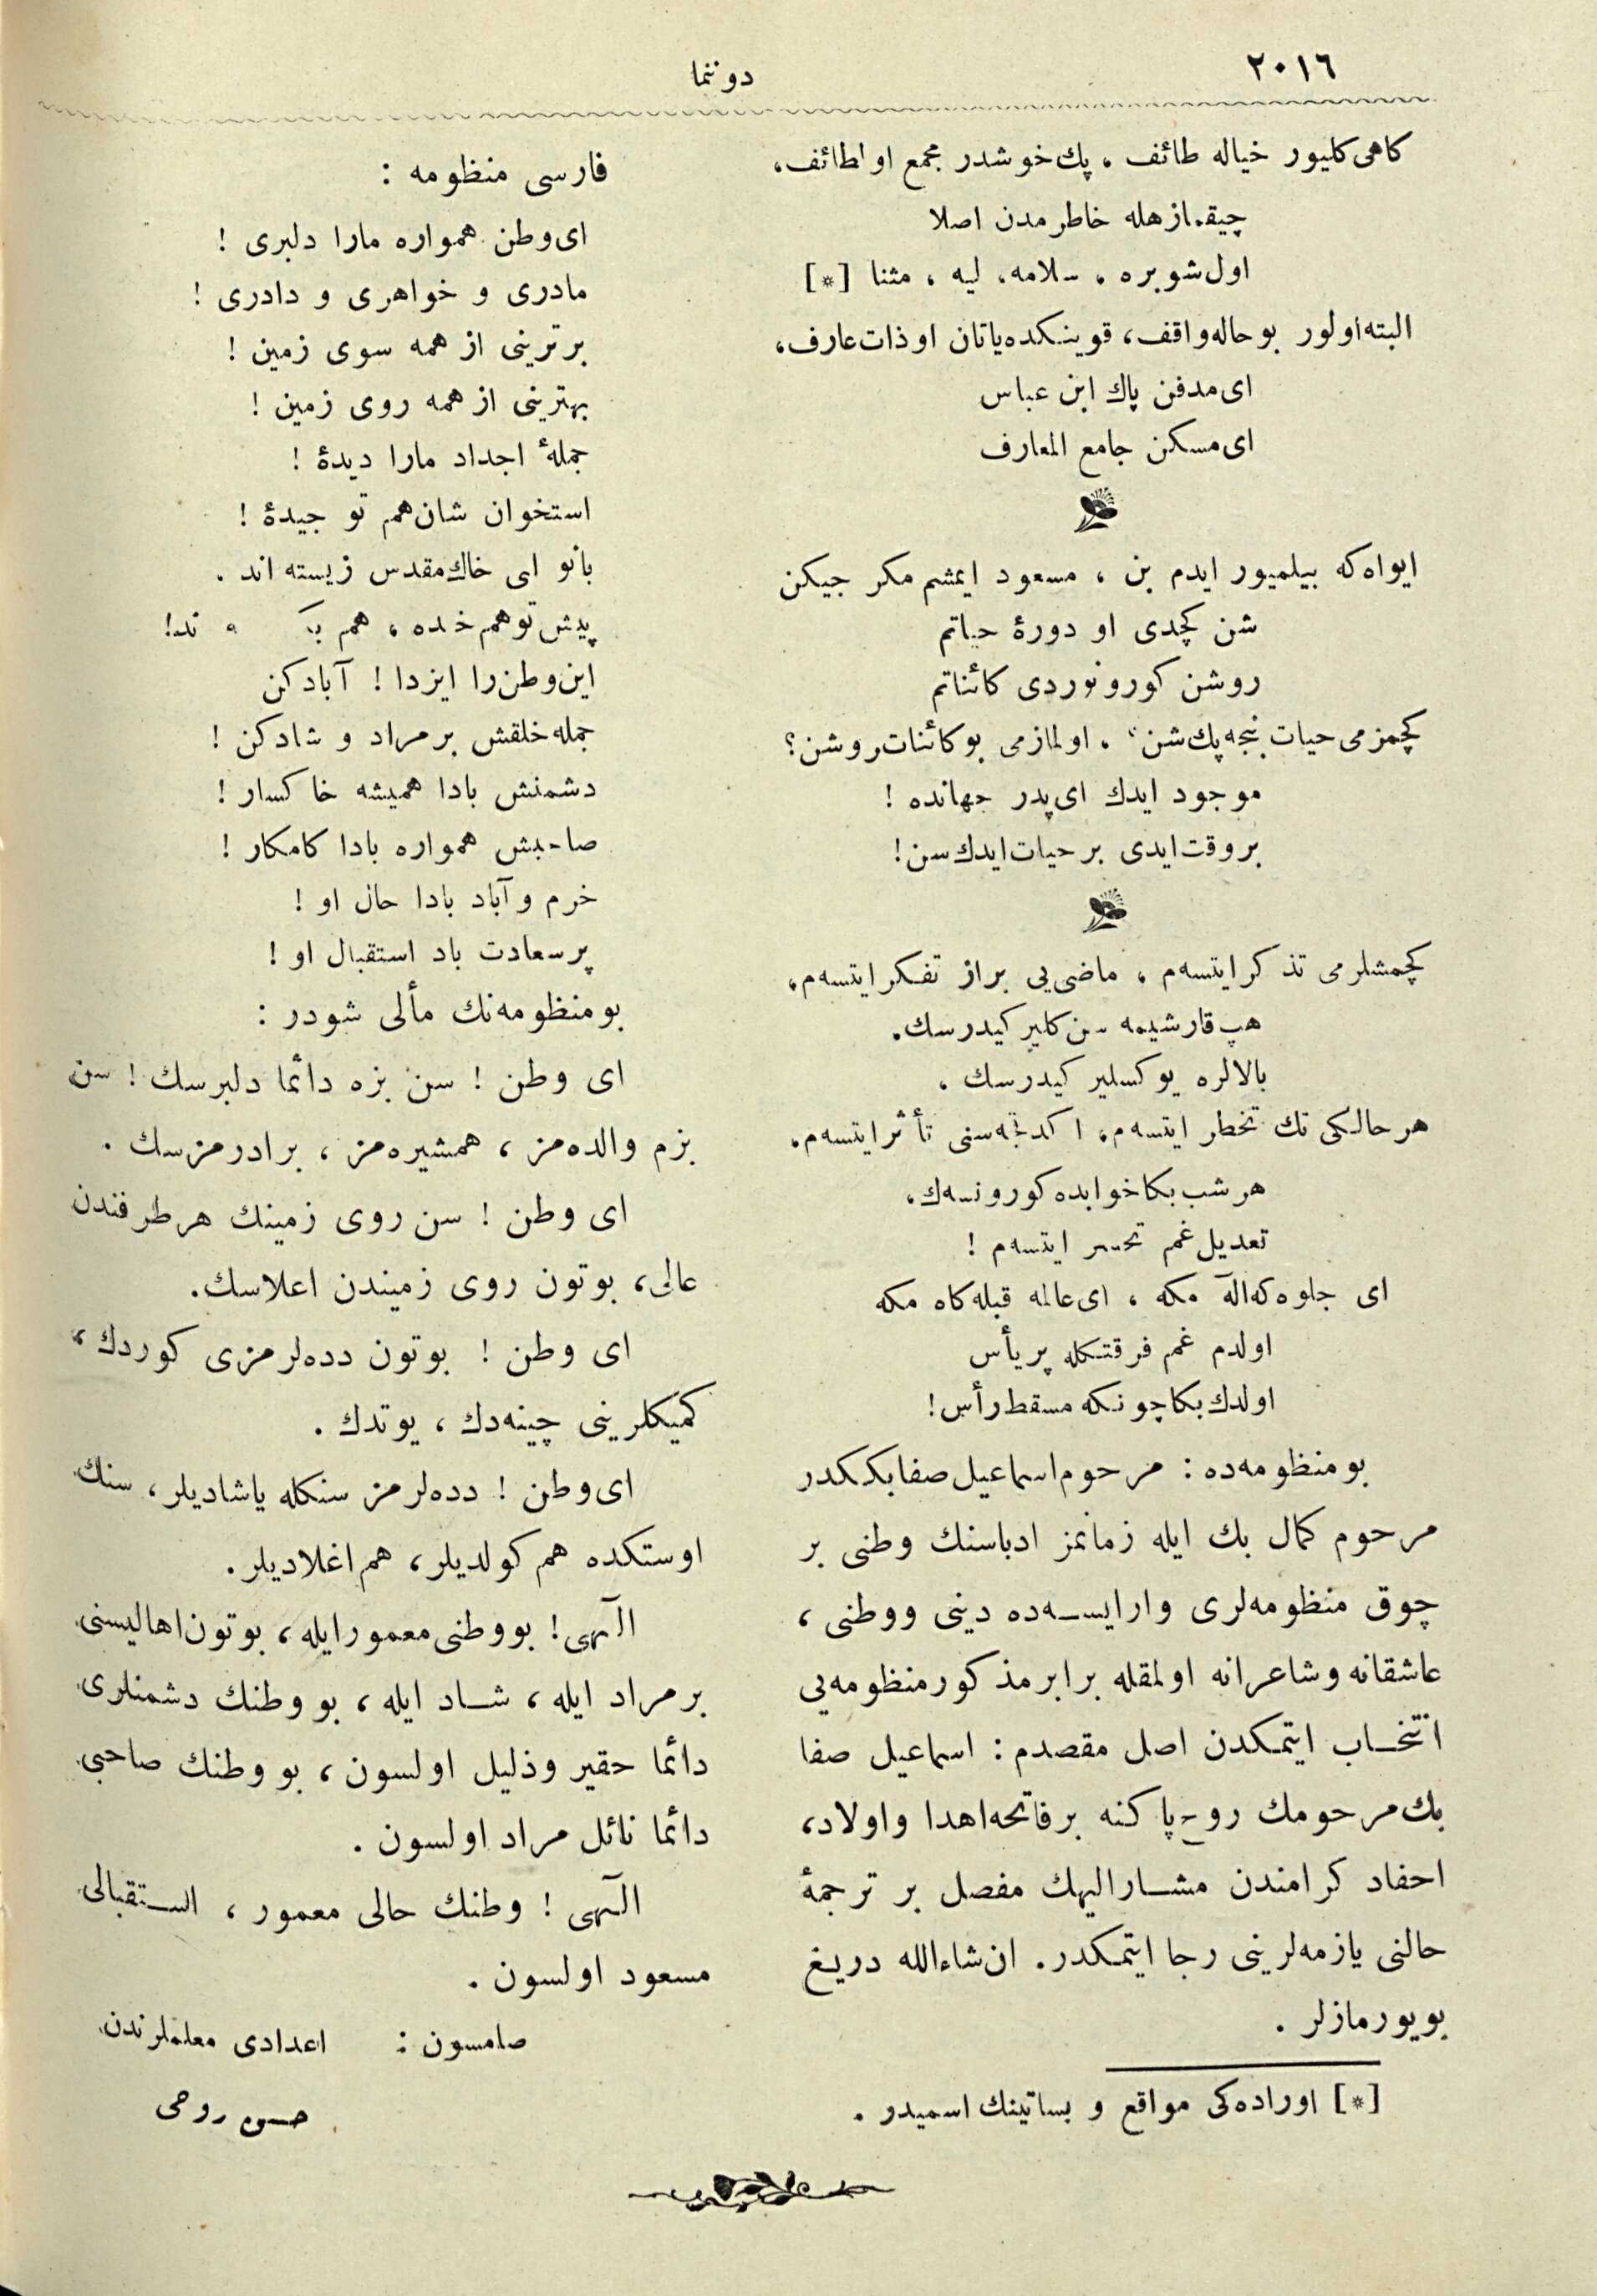 ٢٠١٦
دوننما
كاهی كلیور خیاله طائف ، پك خوشدر مجمع اولطائف،
چیقماز هله خاطرمدن اصلا
اول شوبره ، سلامه، لیه ، مثنا [*]
البته اولور بو حاله واقف، قوینكده یاتان او ذات عارف،
ای مدفن پاك ابن عباس
ای مسكن جامع المعارف
ایواه كه بیلمیور ایدم بن ، مسعود ایمشم مكر جیكن
شن كچدی او دورۀ حیاتم
روشن كورونوردی كائناتم
كچمزمی حیات بنجه پك شن ، اولمازمی بو كائنات روشن؟
موجود ایدك ای پدر جهانده !
بر وقت ایدی بر حیات ایدك سن!
كچمشلرمی تذكر ایتسه‌م ، ماضی‌یی براز تفكر ایتسه‌م،
هپ قارشیمه سن كلیر كیدرسك.
بالالره یوكسلیر كیدرسك ،
هر حالكی تك تخطر ایتسه‌م، اكدقجه سنی تأثر ایتسه‌م،
هر شب بكا خوابده كورونسه‌ك،
تعدیل غم تحسر ایتسه‌م !
ای جلوه‌كه اله مكه ، ای عالمه قبله‌كاه مكه
اولدم غم فرقتكله پریأس
اولدك بكا چونكه مسقط رأس!
بو منظومه‌ده : مرحوم اسماعیل صفا بككدر
مرحوم كمال بك ایله زمانمز ادباسنك وطنی بر
چوق منظومه‌لری وارایسه‌ده دینی ووطنی ،
عاشقانه وشاعرانه اولمقله برابر مذكور منظومه‌یی
انتخاب ایتمكدن اصل مقصدم : اسماعیل صفا
بك مرحومك روح پاكنه بر فاتحه اهدا واولاد،
احفاد كرامندن مشارالیهك مفصل بر ترجمۀ
حالنی یازمه‌لرینی رجا ایتمكدر. ان شاءالله دریغ
بویورمازلر .
[*] اوراده‌كی مواقع و بساتینك اسمیدر .
فارسی منظومه :
ای وطن همواره مارا دلبری !
مادری و خواهری و دادری !
برترینی از همه سوی زمین !
بهترینی از همه روی زمین !
جملۀ اجداد مارا دیدۀ !
استخوان شان هم تو جیدۀ !
باتو ای خاك مقدس زیسته اند .
پیش تو هم خنده ، هم
این وطن را ایزدا ! آباد كن
جمله خلقش بر مراد و شاد كن !
دشمنش بادا همیشه خاكسار !
صاحبش همواره بادا كامكار !
خرم و آباد بادا حال او !
پر سعادت باد استقبال او !
بو منظومه‌نك مألی شودر :
ای وطن ! سن بزه دائما دلبرسك ! سن
بزم والده‌مز ، همشیره‌مز ، برادرمزسك .
ای وطن ! سن روی زمینك هر طرفندن
عالی، بوتون روی زمیندن اعلاسك.
ای وطن ! بوتون دده‌لرمزی كوردك ،
كمیكلرینی چینه‌دك ، یوتدك .
ای وطن ! دده‌لرمز سنكله یاشادیلر، سنك
اوستكده هم كولدیلر، هم اغلادیلر.
الٓهی ! بو وطنی معمور ایله، بوتون اهالیسنی
بر مراد ایله ، شاد ایله ، بو وطنك دشمنلری
دائما حقیر وذلیل اولسون ، بو وطنك صاحبی
دائما نائل مراد اولسون .
الٓهی ! وطنك حالی معمور ، استقبالی
مسعود اولسون .
صامسون : اعدادی معلملرندن
حسن روحی